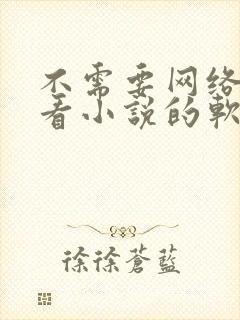 不需要网络
看小说的軟
徐徐蒼藍